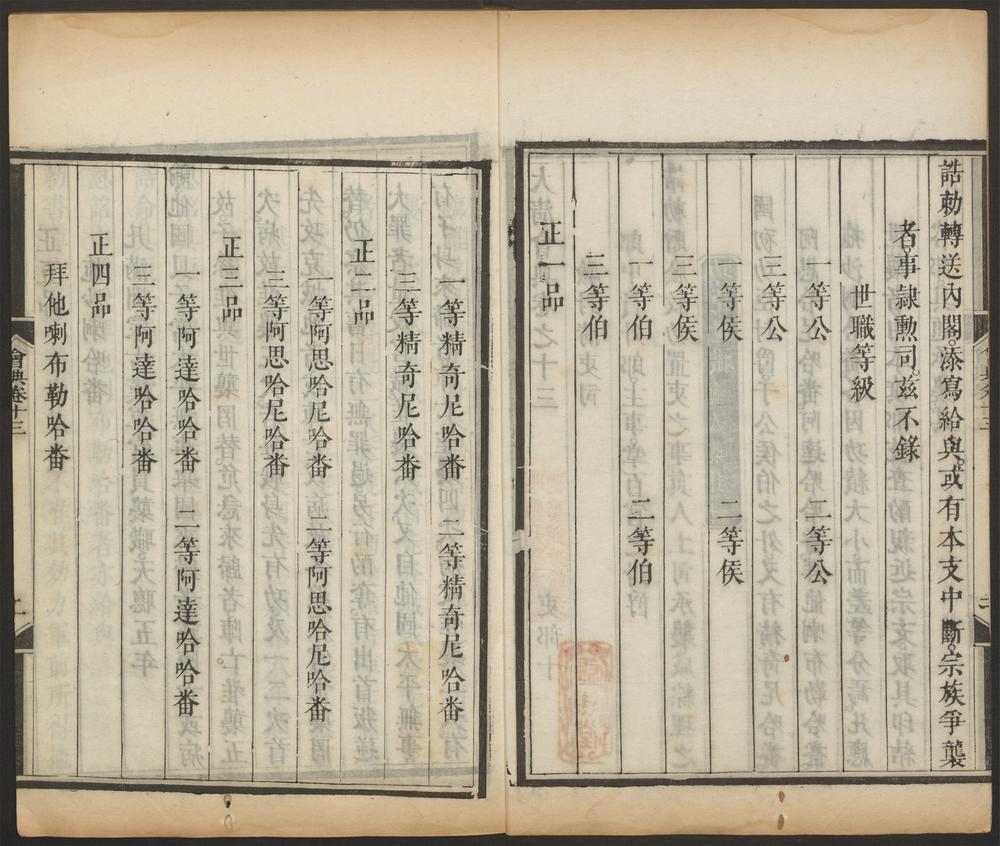 誥勅轉送內閣添寫給與或有本支中斷宗族爭襲
者事隸勲司茲不錄
世職等級
一等公　二等公
三等公
一等侯　二等侯
三等侯
一等伯　二等伯
三等伯
正一品
一等精奇尼哈番　二等精奇尼哈番
三等精奇尼哈番
正二品
一等阿思哈尼哈番　二等阿思哈尼哈番
三等阿思哈尼哈番
正三品
一等阿達哈哈番　二等阿達哈哈番
三等阿達哈哈番
正四品
拜他喇布勒哈番
會典卷十三